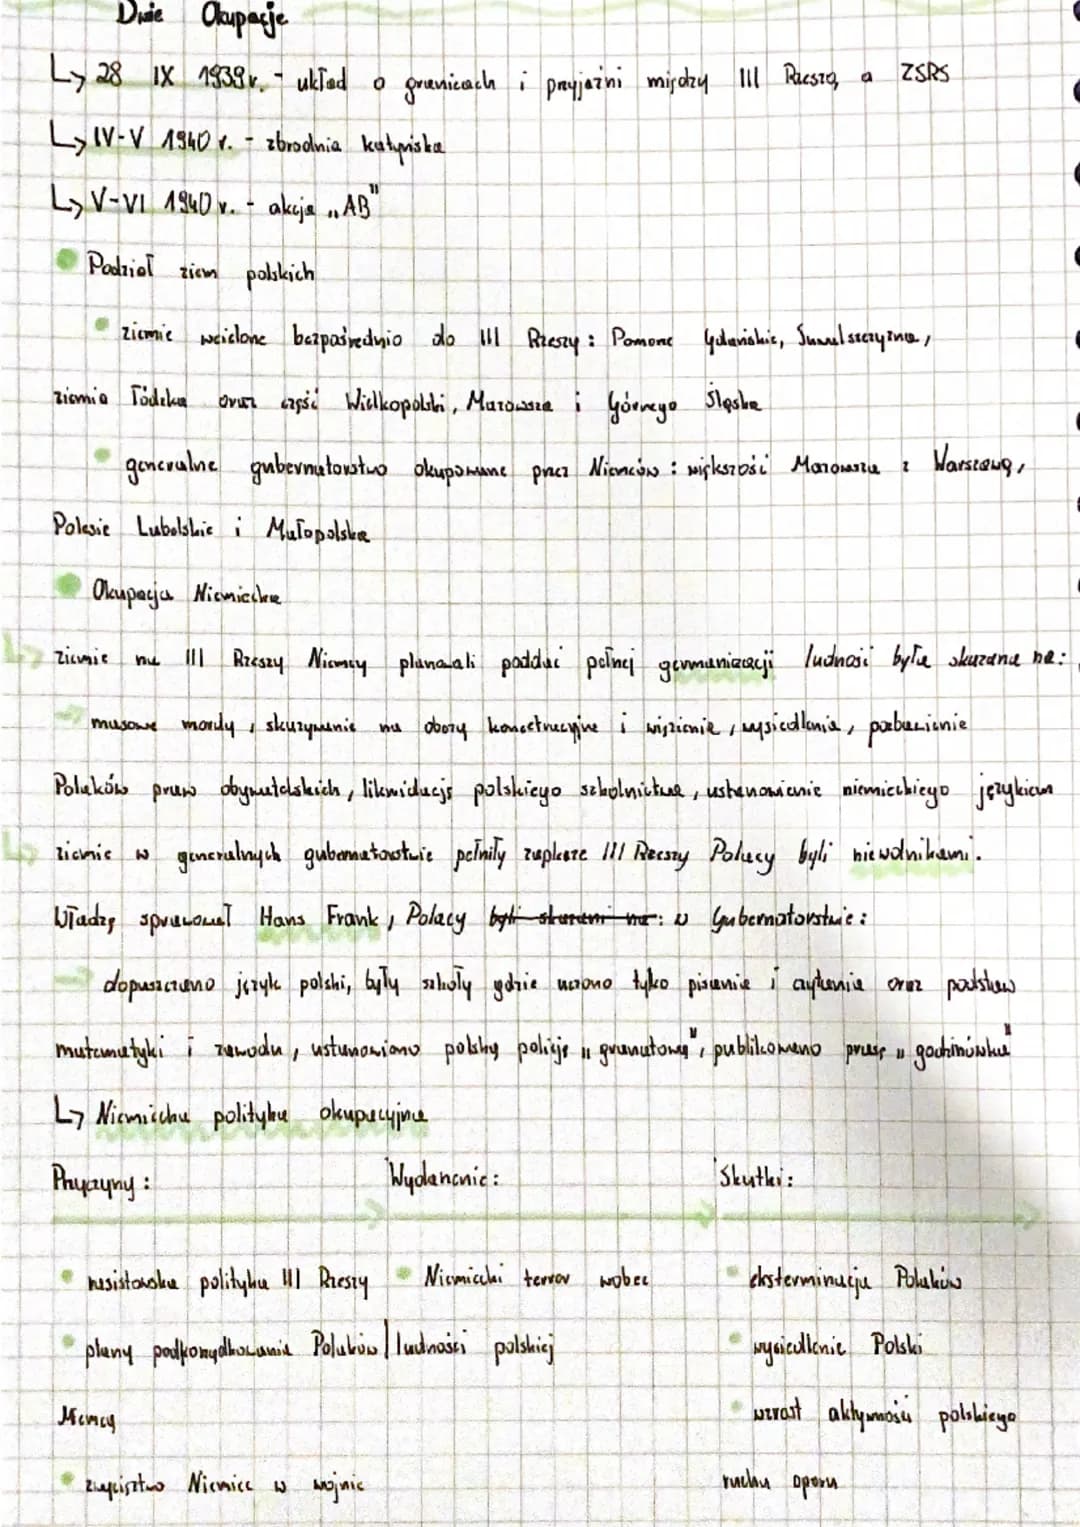 Dwie Okupacje
↳ 28 IX 1939r. - układ o granicach i przyjaźni między III Rzeszą a ZSRS
↳ IV-V 1940 r. - zbrodnia katyńska
↳ V-VI 1940 r. - akcja „AB"
Podział ziem polskich
ziemie wcielone bezpośrednio do III Rzeszy: Pomorze Gdańskie, Suwalszczyzna,
ziemia łódzka oraz część Wielkopolski, Mazowsza i Górnego Śląska
generalne gubernatorstwo okupowane przez Niemców: większość Mazowsza z Warszawą,
Polesie Lubelskie i Małopolska
Okupacja Niemiecka
↳ ziemie na III Rzeszy Niemcy planowali poddać pełnej germanizacji ludność była skazana na:
→ masowe mordy, skazywanie na obozy koncetracyjne i więzienia, wysiedlenia, pozbawienie
Polaków praw obywatelskich, likwidację polskiego szkolnictwa, ustanowienie niemieckiego językiem
↳ ziemie w generalnych gubernatorstwie pełniły zaplecze III Rzeszy Polacy byli niewolnikami.
Władzę sprawował Hans Frank, Polacy byli skazani na: w Gubernatorstwie:
→ dopuszczono język polski, były szkoły gdzie uczono tylko pisania i czytania oraz podstaw
matematyki i zawodu, ustanowiono polską policję „granatową", publikowano prasę „gadzinówka"
↳ Niemiecka polityka okupacyjna
Przyczyny: Wydarzenie: Skutki:
nasistowska polityka III Rzeszy Niemiecki terror wobec eksterminacja Polaków
plany podporządkowania Polaków | ludności polskiej wysiedlenie Polski
Niemcy wzrost aktywności polskiego
zwycięstwo Niemiec w wojnie ruchu oporu